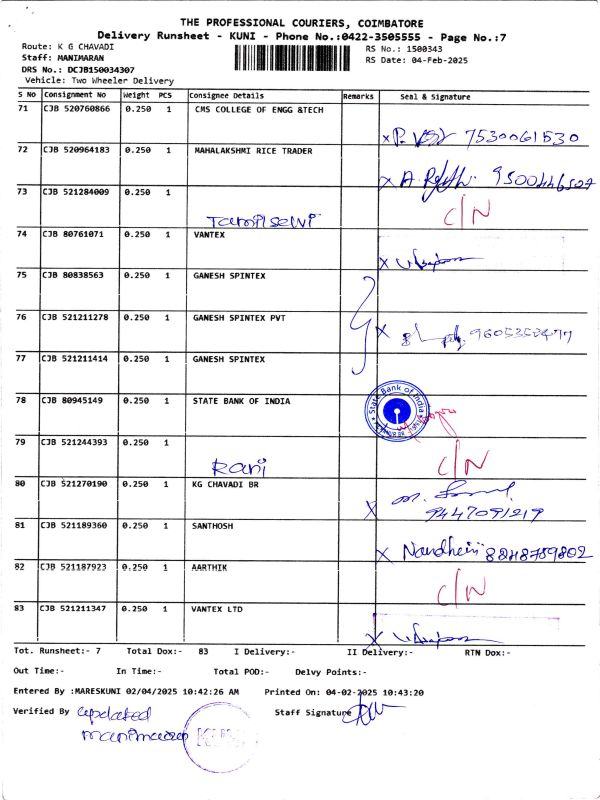 THE PROFESSIONAL COURIERS, COIMBATORE
Delivery Runsheet - KUNI - Phone No.:0422-3505555 - Page No.:7
Route: K G CHAVADI
RS No.: 1500343
Staff: MANIMARAN
RS Date: 04-Feb-2025
DRS No.: DCJB150034307
Vehicle: Two Wheeler Delivery
S No Consignment No Weight PCS Consignee Details Remarks Seal & Signature
71 CJB 520760866 0.250 1 CMS COLLEGE OF ENGG &TECH
7530061530
72 CJB 520964183 0.250 1 MAHALAKSHMI RICE TRADER
9500446507
73 CJB 521284009 0.250 1 C/N
Tamilselvi
74 CJB 80761071 0.250 1 VANTEX
75 CJB 80838563 0.250 1 GANESH SPINTEX
76 CJB 521211278 0.250 1 GANESH SPINTEX PVT
77 CJB 521211414 0.250 1 GANESH SPINTEX
78 CJB 80945149 0.250 1 STATE BANK OF INDIA
State Bank of India
79 CJB 521244393 0.250 1 C/N
Rani
80 CJB 521270190 0.250 1 KG CHAVADI BR
9447091219
81 CJB 521189360 0.250 1 SANTHOSH
8248789802
82 CJB 521187923 0.250 1 AARTHIK C/N
83 CJB 521211347 0.250 1 VANTEX LTD
Tot. Runsheet:- 7 Total Dox:- 83 I Delivery:- II Delivery:- RTN Dox:-
Out Time:- In Time:- Total POD:- Delvy Points:-
Entered By :MARESKUNI 02/04/2025 10:42:26 AM Printed On: 04-02-2025 10:43:20
Verified By updated Staff Signature